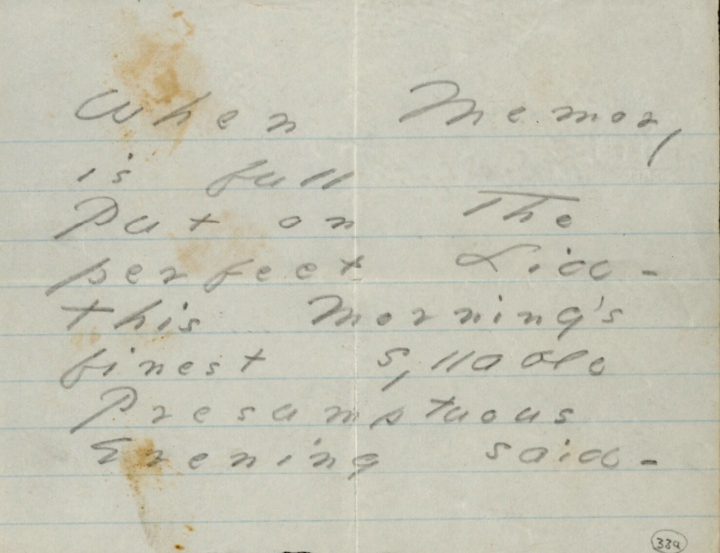 When Memory
is full
Put on the
perfect Lid -
This Morning's
finest syllable
Presumptuous
Evening said -
33a